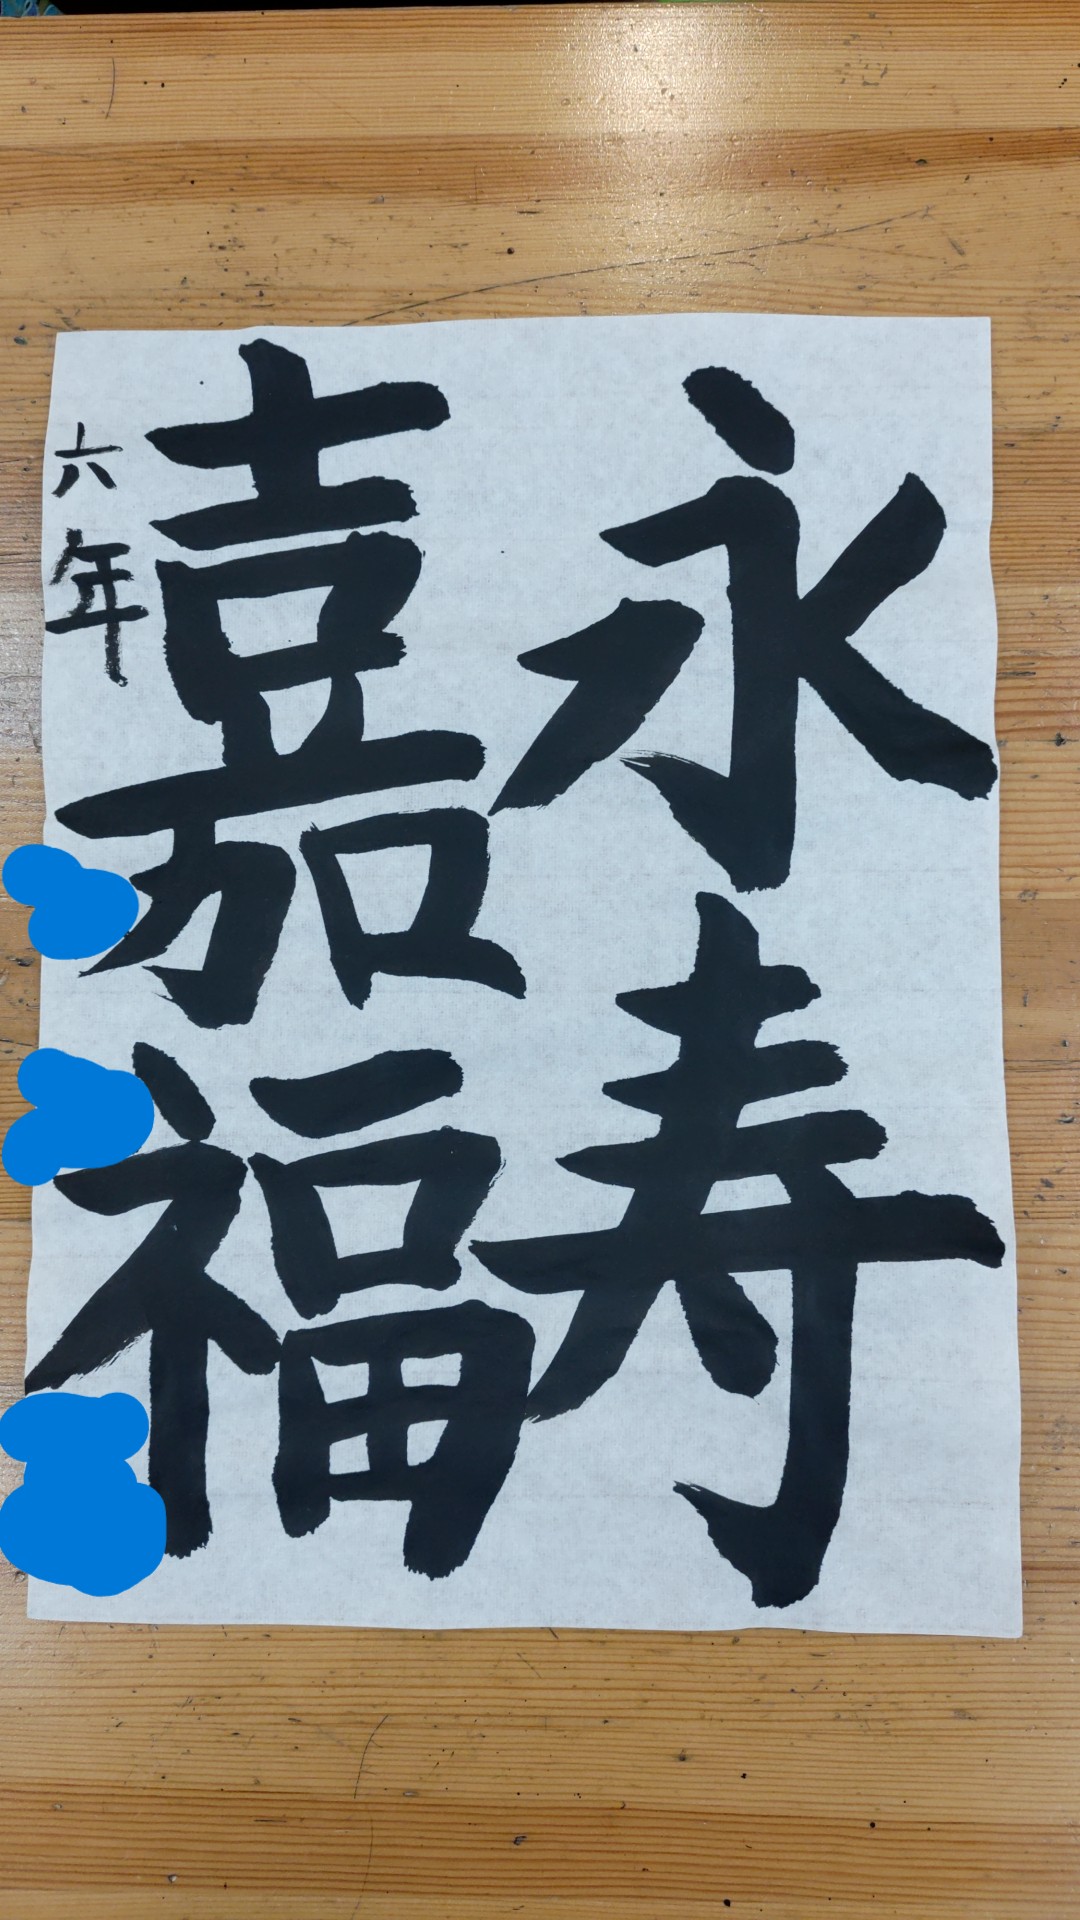 永寿
嘉福
六年